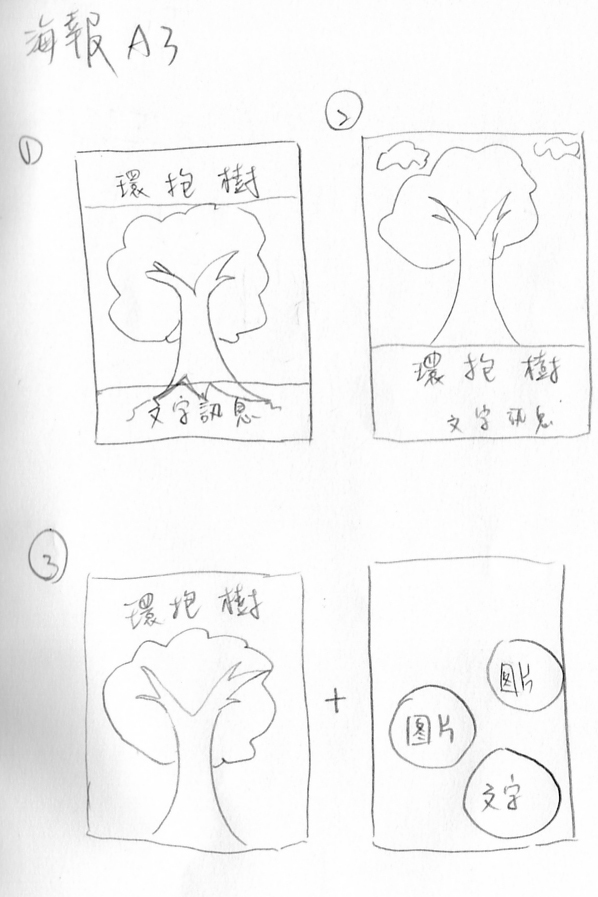 海報 A3
①
環抱樹
文字訊息
②
環抱樹
文字訊息
③
環抱樹
+
图片
图片
文字